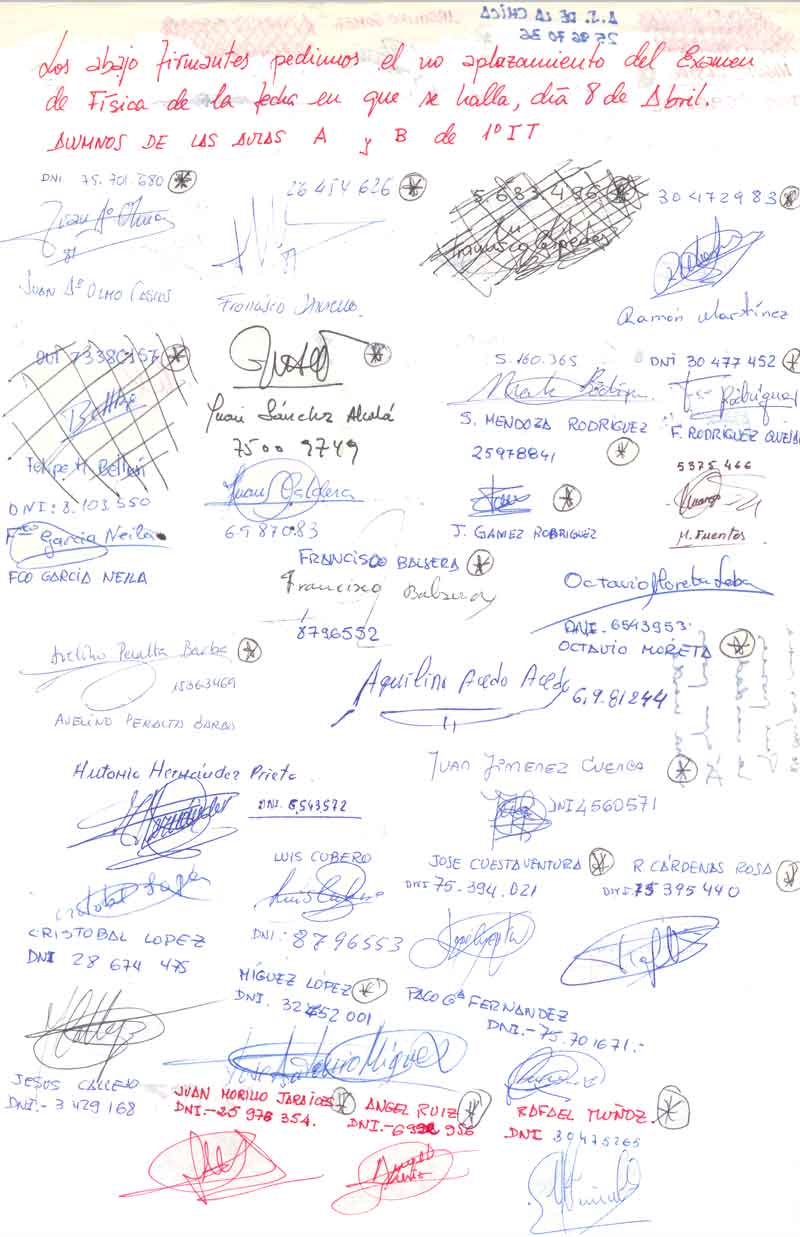 Los abajo firmantes pedimos el no aplazamiento del Examen
de Física de la fecha en que se halla, día 8 de Abril.
ALUMNOS DE LAS AULAS A y B de 1º IT
DNI 75.701.680
26 454 626
30472983
JUAN Aº OLMO
Francisco
Ramón Martínez
Juan Sánchez Alcalá
7500 9749
5.160.365
S. MENDOZA RODRIGUEZ
25978841
DNI 30 477 452
F. RODRIGUEZ
Felipe
DNI: 8.103.550
Fco García Neila
FCO GARCIA NEILA
Juan Caldera
6987083
J. GAMEZ RODRIGUEZ
5375466
M. Fuentes
FRANCISCO BALSERA
Francisco Balsera
8796552
Octavio Moreta
DNI. 6543953.
OCTAVIO MORETA
Avelino Peralta Barba
15363469
AVELINO PERALTA BARBA
Aquilino Acedo Acedo
6.981244
Antonio Hernández Prieto
DNI. 6,543,572
JUAN JIMENEZ CUENCA
DNI 4560571
LUIS CUBERO
Luis Cubero
DNI: 8796553
JOSE CUESTA VENTURA
DNI 75.394.021
R. CÁRDENAS ROSA
DNI. 75 395 440
CRISTOBAL LOPEZ
DNI 28 674 475
MÍGUEZ LÓPEZ
DNI. 32452001
PACO Gª FERNANDEZ
DNI.-75.701671.-
JESUS CALLEJO
DNI.- 3 429 168
JUAN MORILLO JARAICES
DNI.-25 976 354.
ANGEL RUIZ
RAFAEL MUÑOZ
DNI 30475265
Angel Ruiz